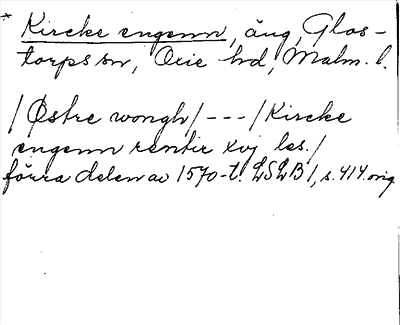 * Kircke engenn, äng, Glos-
torps sn, Oxie hd, Malm. l.
/Østre wongh/---/Kircke
engenn rentir xvj les./
förra delen av 1570-t. LSLB 1, s. 414. orig.